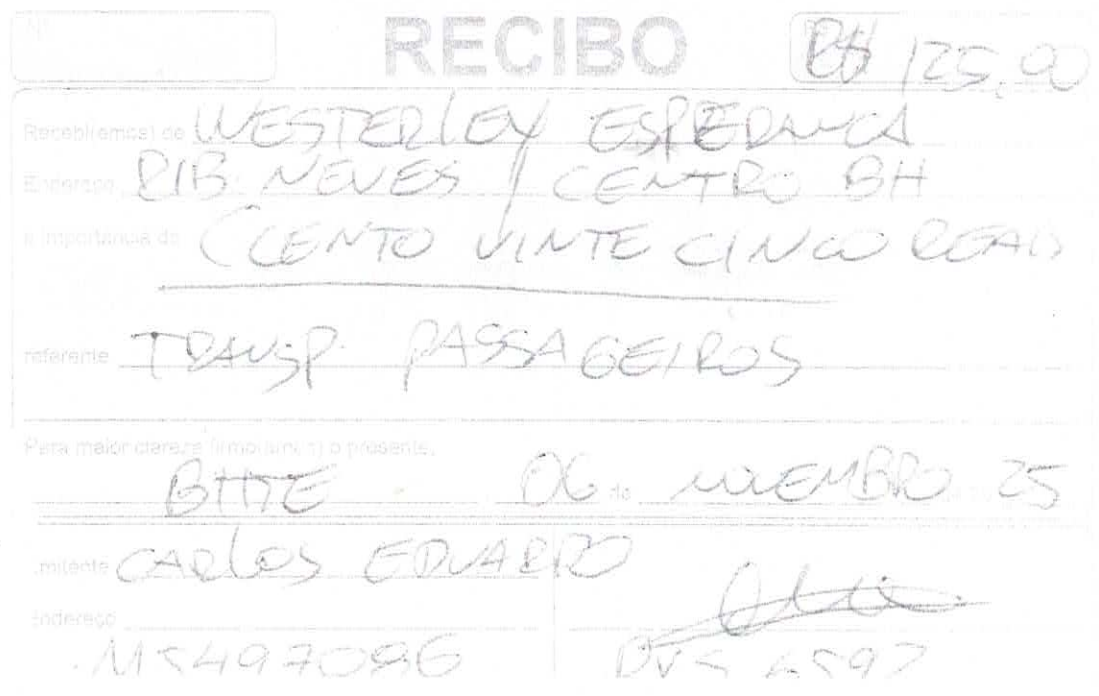 Nº RECIBO R$ 125,00
Recebi(emos) de WESTERLEY ESPERANCA
Endereço RIB. NEVES / CENTRO BH
a importância de (CENTO VINTE CINCO REAIS
referente TRANSP. PASSAGEIROS
Para maior clareza firmo(amos) o presente.
BHTE 06 de NOVEMBRO 25
Emitente CARLOS EDUARDO
Endereço
M5497096